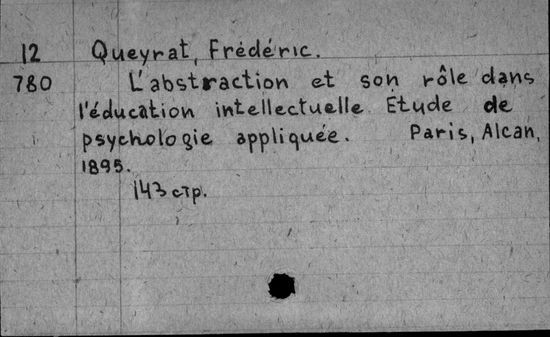 12 Queyrat, Frédéric.
780 L'abstraction et son rôle dans
l'éducation intellectuelle Étude de
psychologie appliquée. Paris, Alcan,
1895.
143 стр.